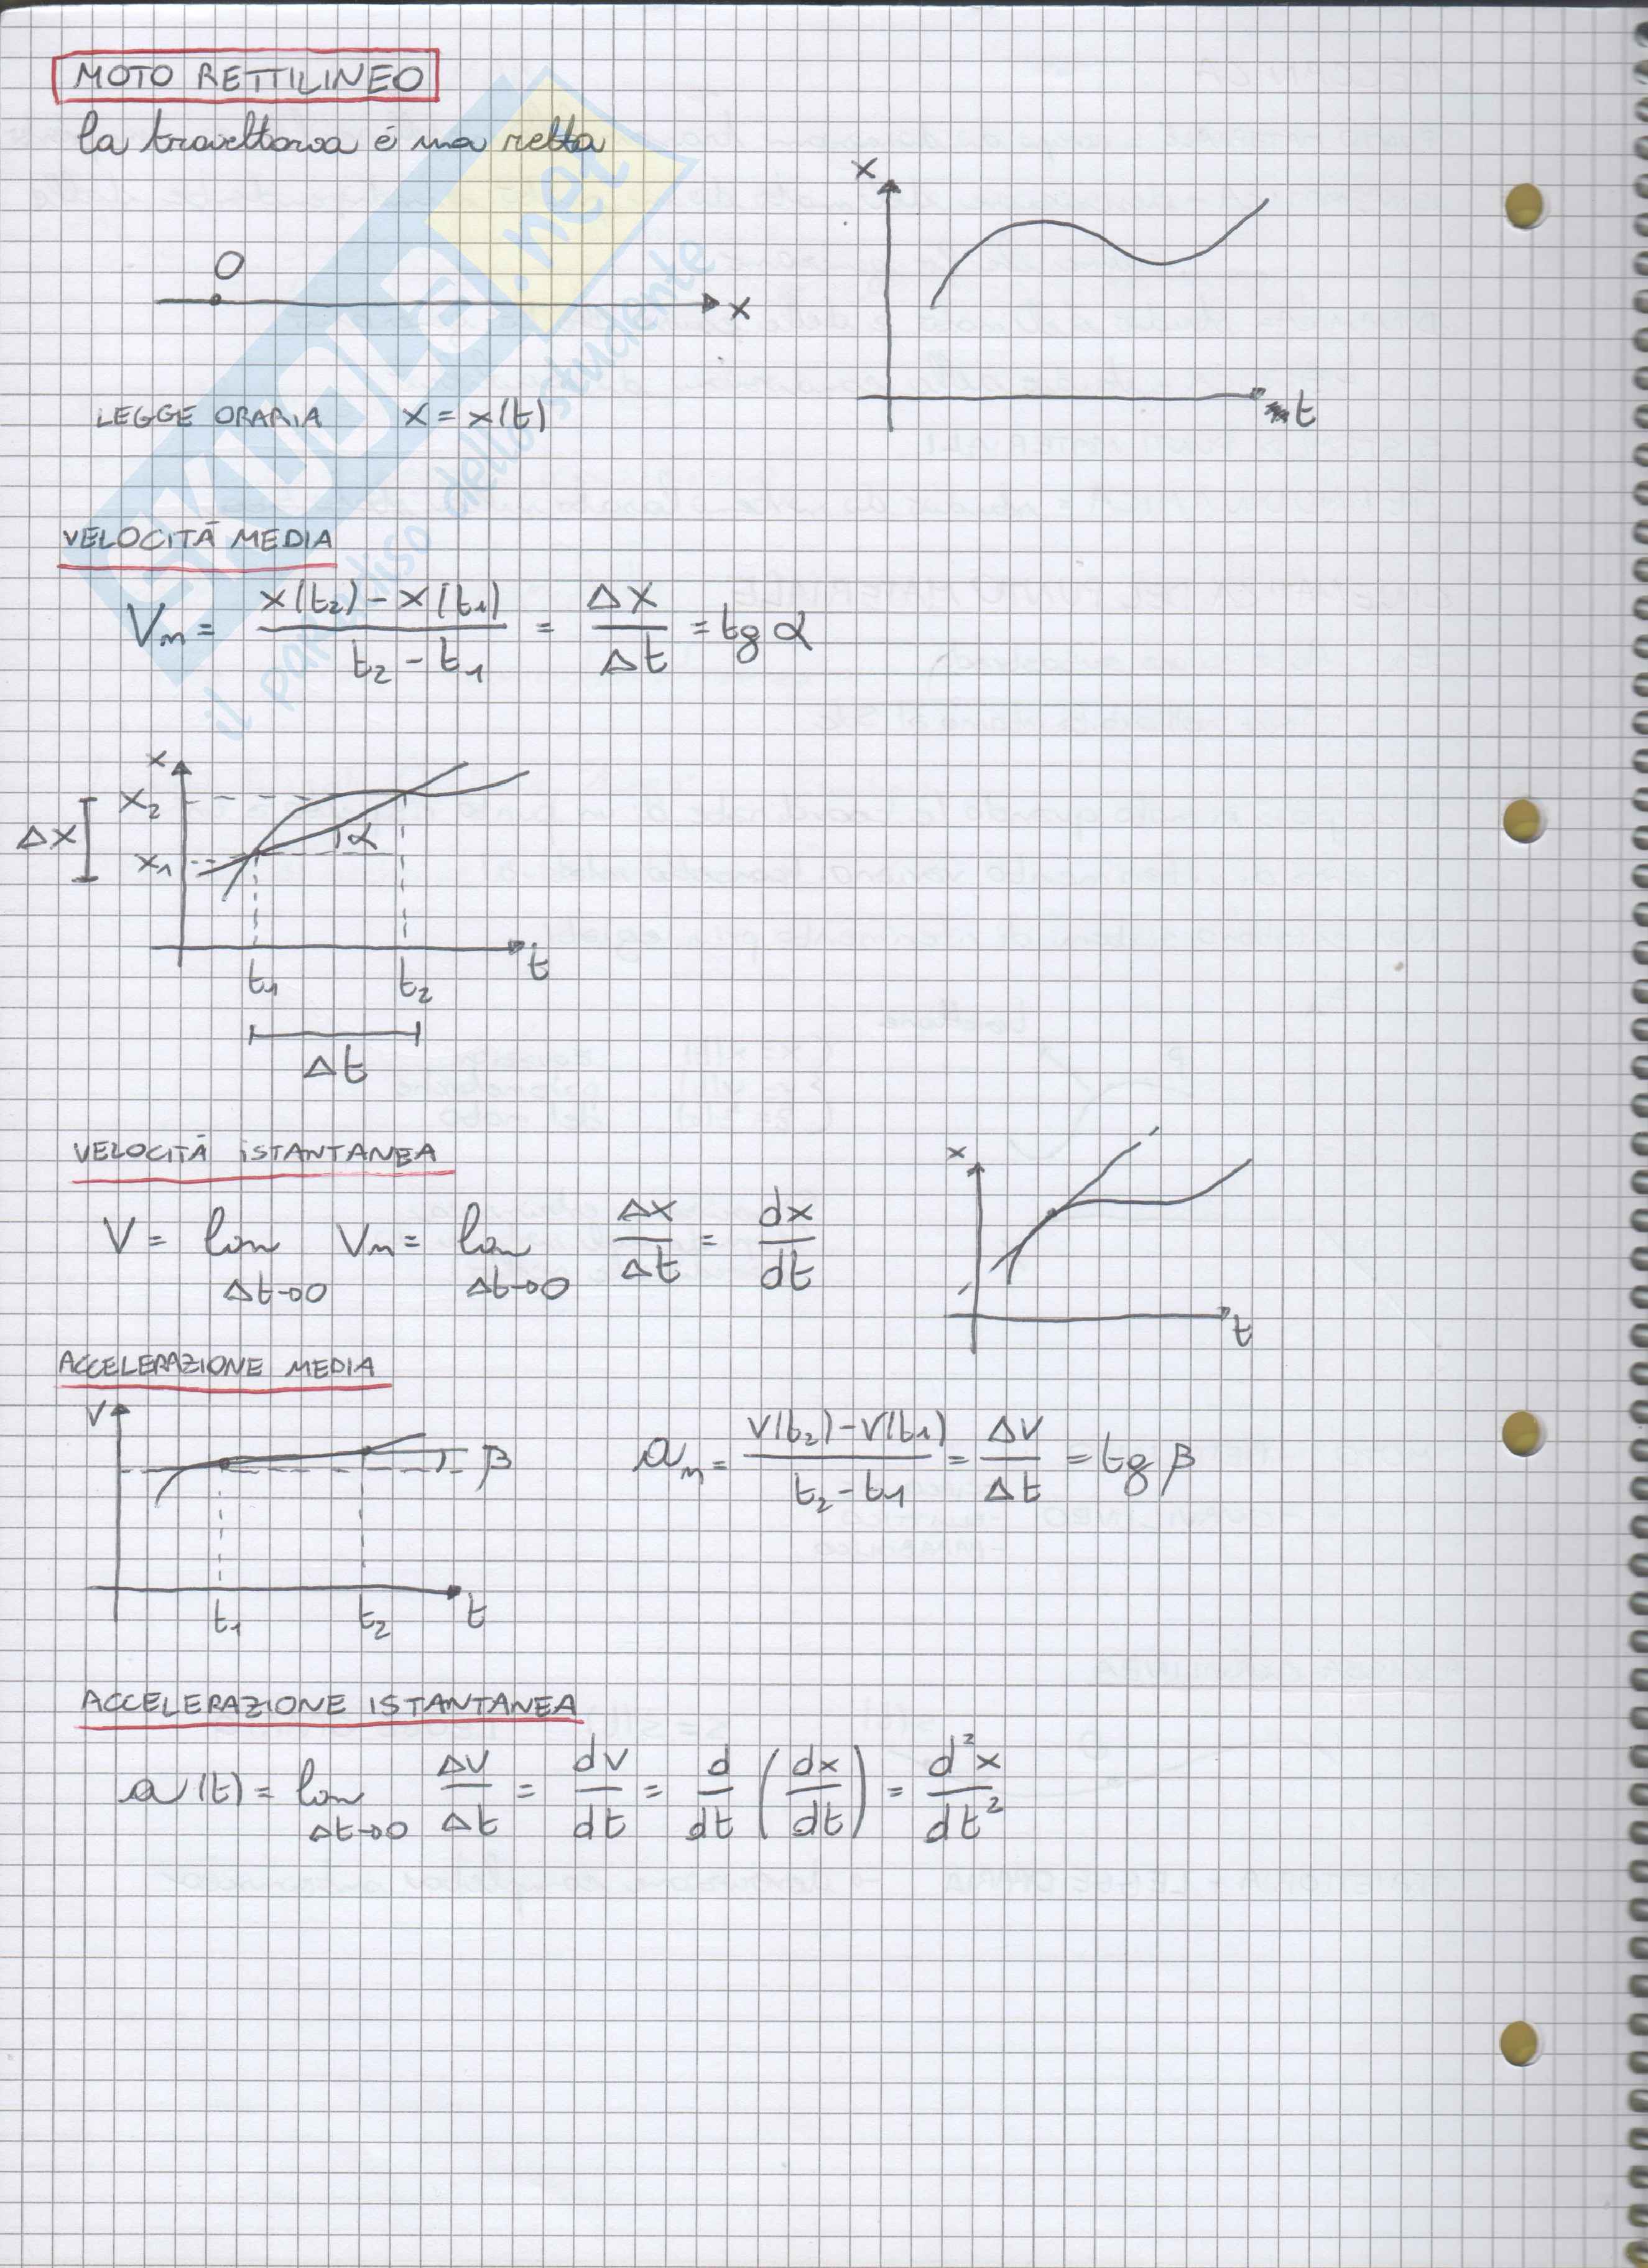 MOTO RETTILINEO
la traiettoria é una retta
O
x
x
t
LEGGE ORARIA x = x(t)
VELOCITÀ MEDIA
Vm = x(t2) - x(t1) / t2 - t1 = Δx / Δt = tg α
x
x2
Δx
x1
α
t
t1 t2
Δt
VELOCITÀ ISTANTANEA
V = lim Δt→0 Vm = lim Δt→0 Δx / Δt = dx / dt
x
t
ACCELERAZIONE MEDIA
V
β
t1 t2 t
am = V(t2) - V(t1) / t2 - t1 = ΔV / Δt = tg β
ACCELERAZIONE ISTANTANEA
a(t) = lim Δt→0 ΔV / Δt = dV / dt = d / dt (dx / dt) = d²x / dt²
SKUOLA.net
il paradiso dello studente